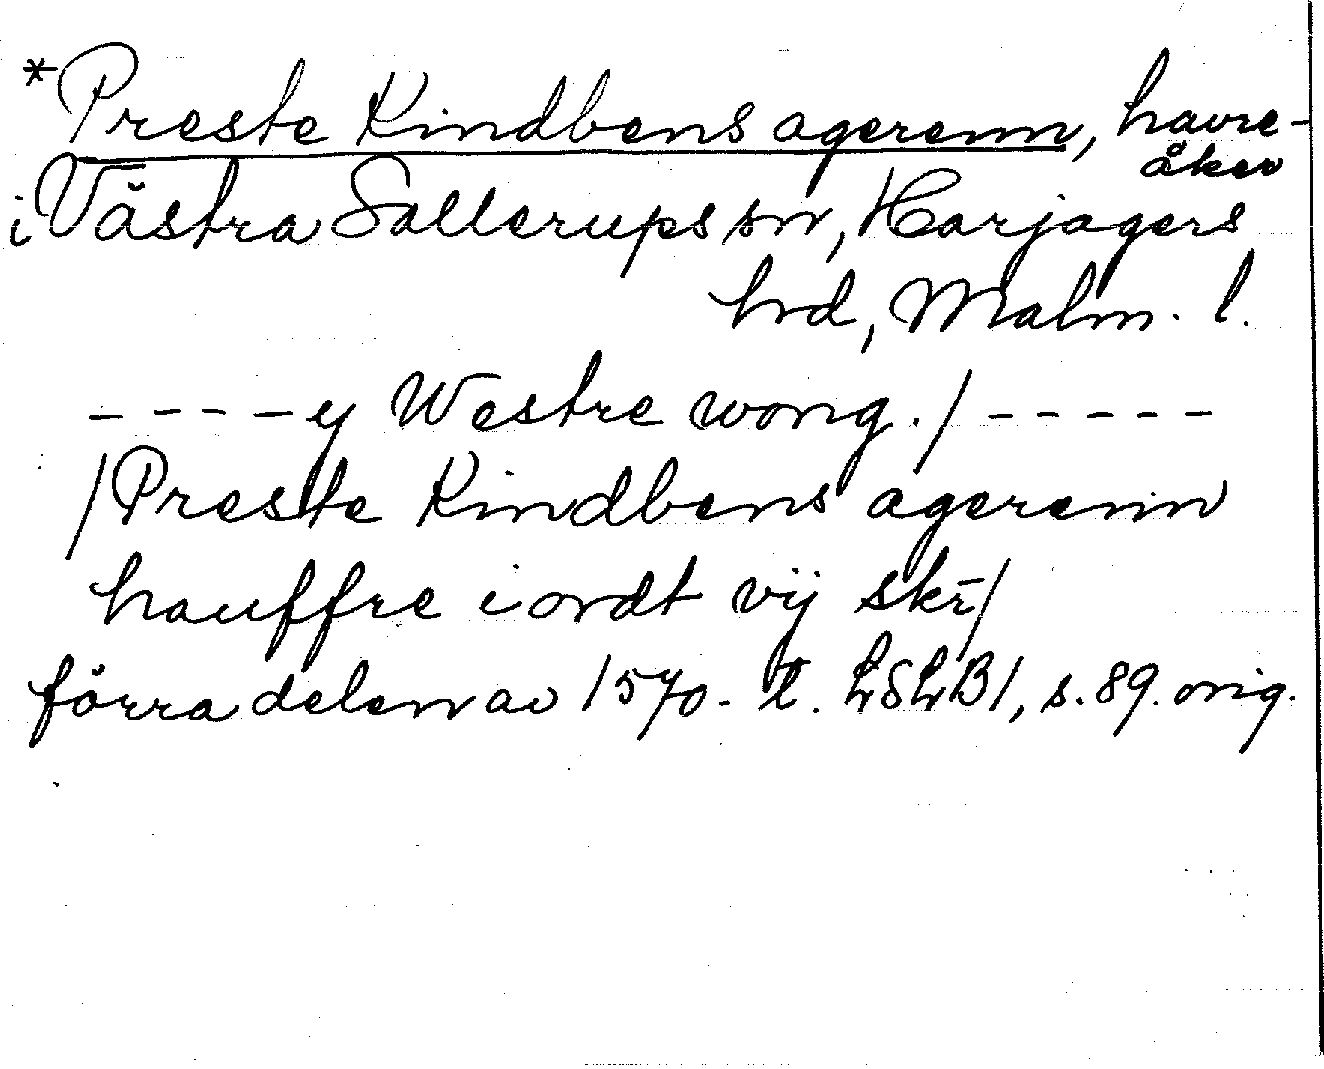 *Preste Kindbens agerenn, havre-
åker
i Västra Sallerups sn, Harjagers
hrd, Malm. l.
- - - - y Westre wong. / - - - - -
/Preste Kindbens agerenn
hauffre i ordt vij skr̄/
förra delen av 1570-t. LSLB1, s. 89. orig.